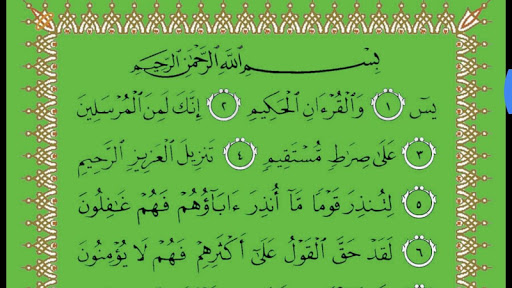 بِسْمِ ٱللَّهِ ٱلرَّحْمَٰنِ ٱلرَّحِيمِ
يسٓ ١ وَٱلْقُرْءَانِ ٱلْحَكِيمِ ٢ إِنَّكَ لَمِنَ ٱلْمُرْسَلِينَ
٣ عَلَىٰ صِرَٰطٍ مُّسْتَقِيمٍ ٤ تَنزِيلَ ٱلْعَزِيزِ ٱلرَّحِيمِ
٥ لِتُنذِرَ قَوْمًا مَّآ أُنذِرَ ءَابَآؤُهُمْ فَهُمْ غَٰفِلُونَ
٦ لَقَدْ حَقَّ ٱلْقَوْلُ عَلَىٰٓ أَكْثَرِهِمْ فَهُمْ لَا يُؤْمِنُونَ